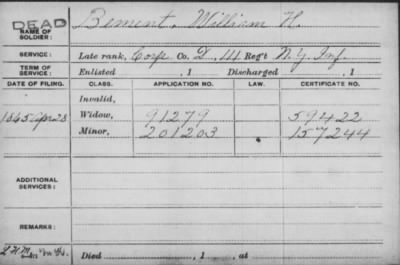 DEAD
NAME OF SOLDIER: Bement, William H.
SERVICE: Late rank, Corp Co. D, 114 Reg't N.Y. Inf.
TERM OF SERVICE: Enlisted , 1 Discharged , 1
DATE OF FILING. CLASS. APPLICATION NO. LAW. CERTIFICATE NO.
Invalid,
1865 Apr 28 Widow, 91279 59422
Minor, 201203 157244
ADDITIONAL SERVICES:
REMARKS:
Died , 1 , at